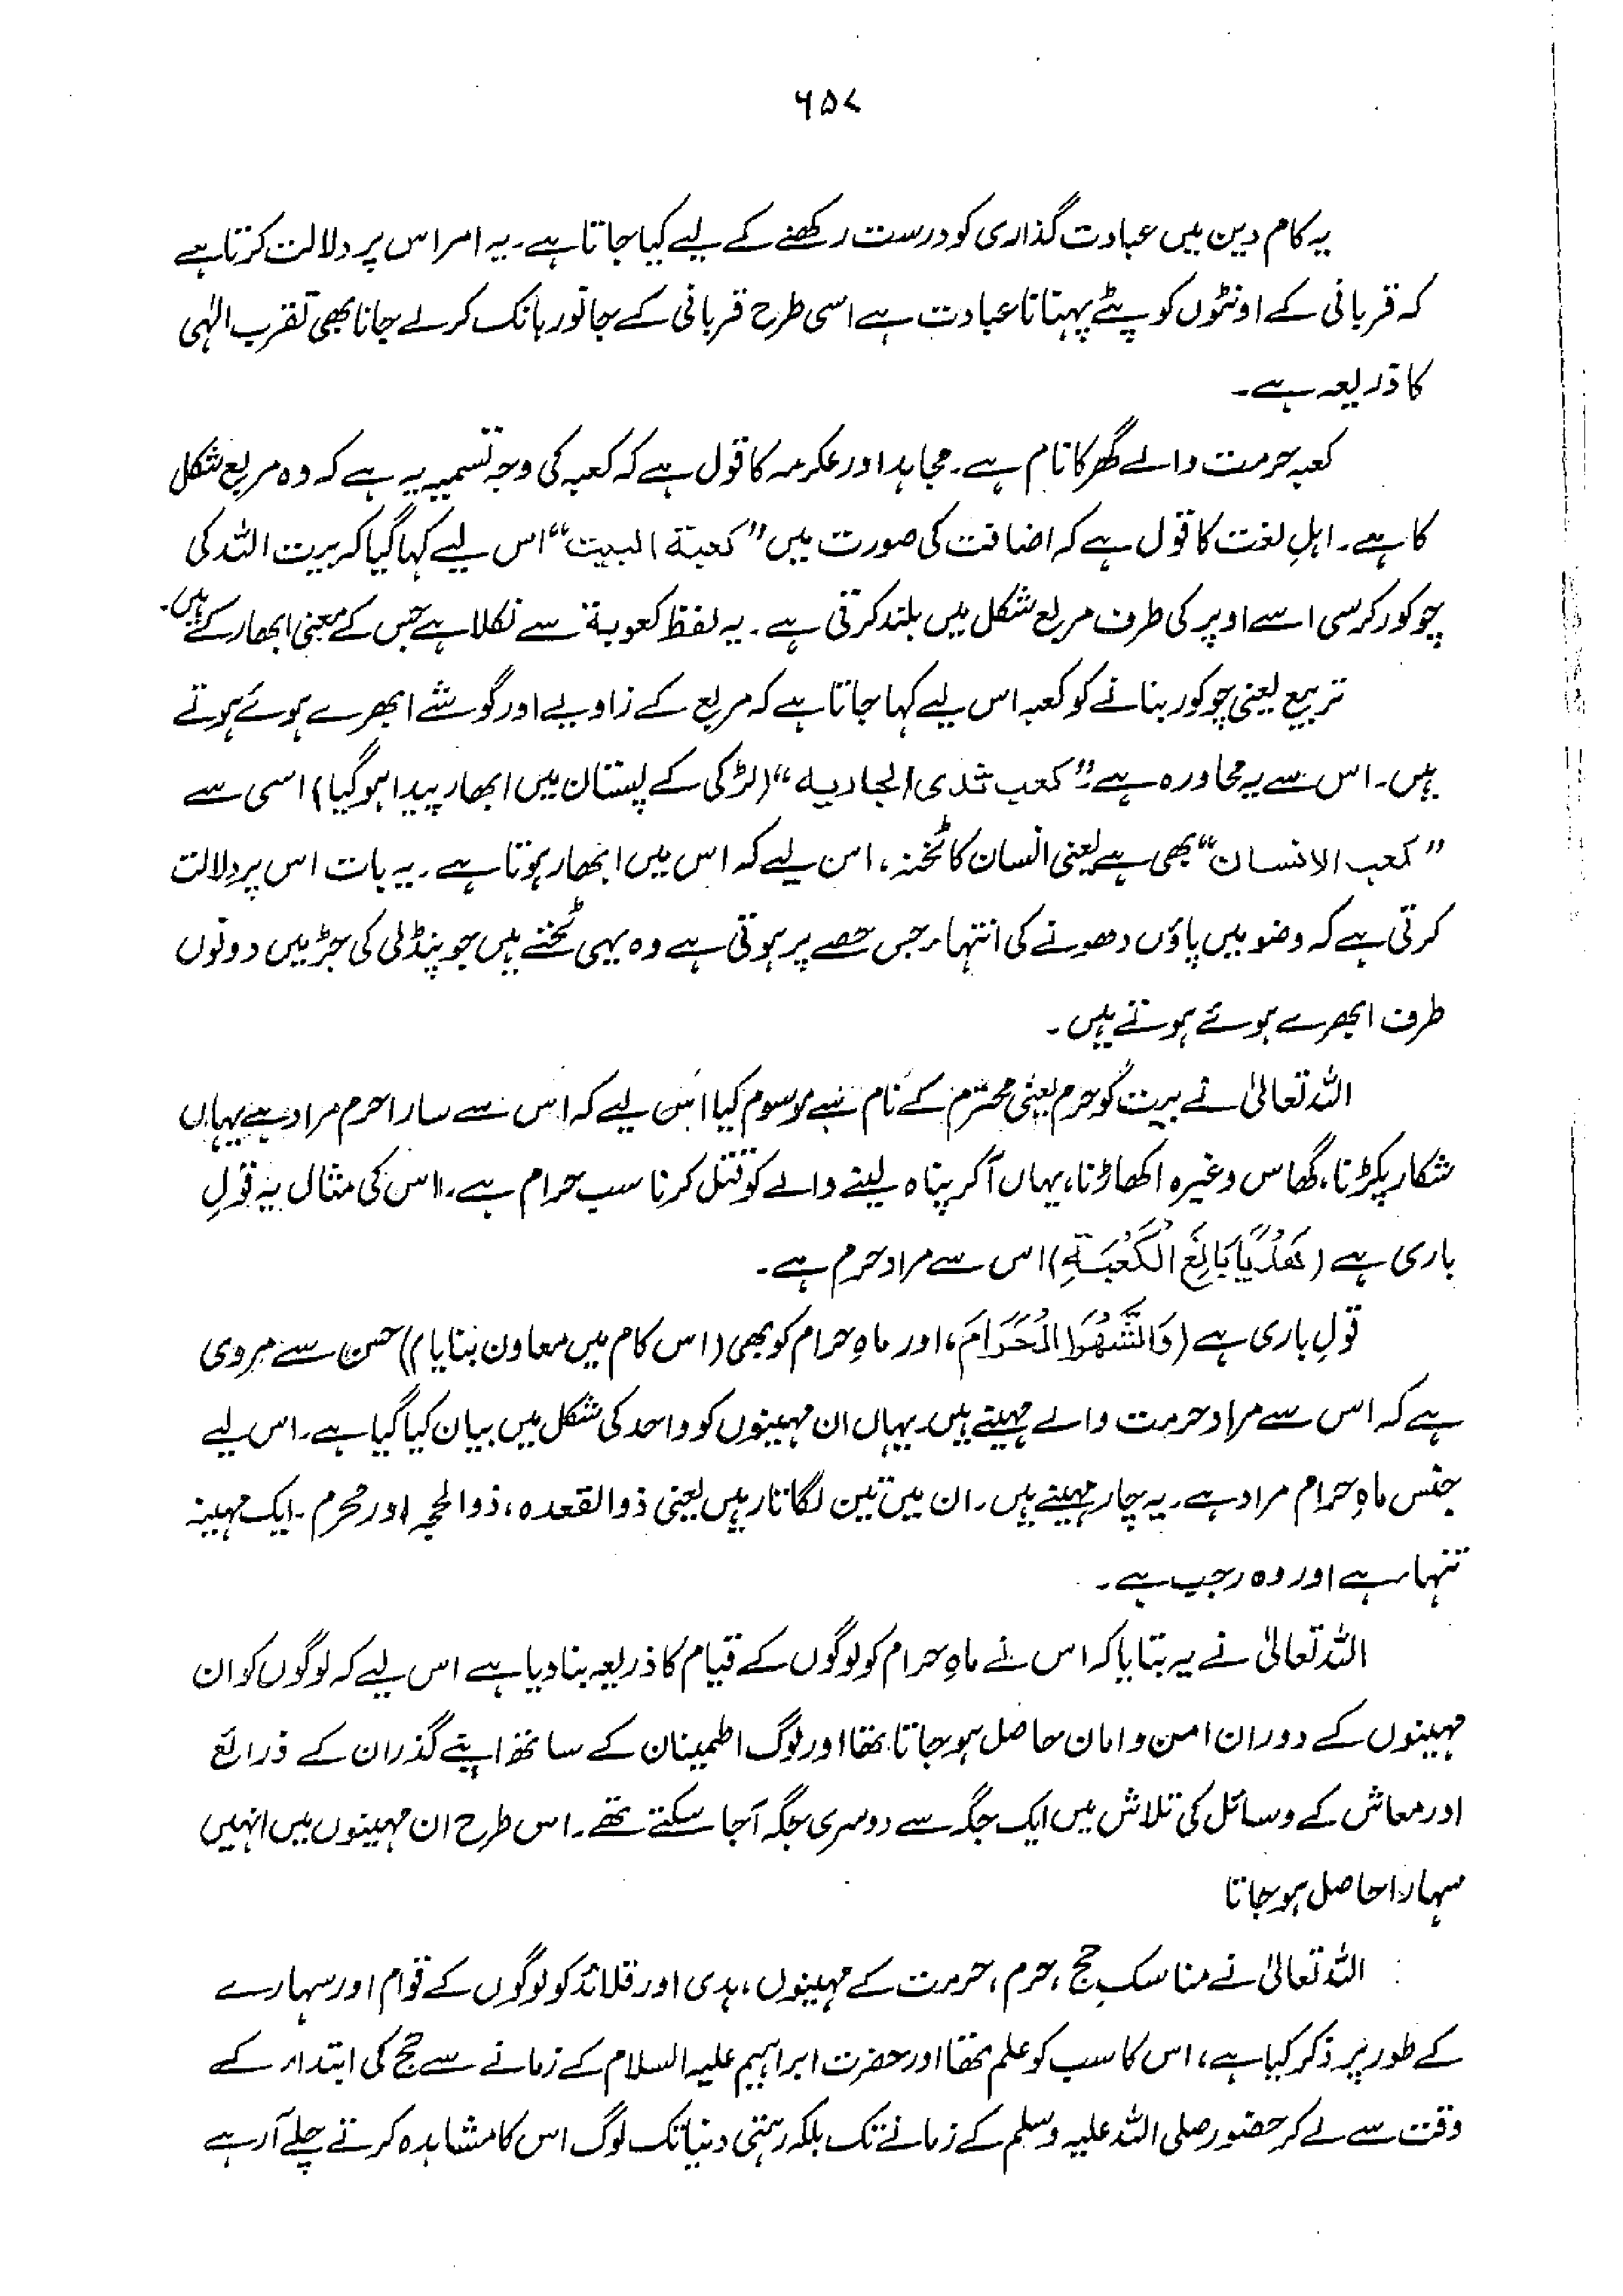 ۶۵۷
یہ کام دین میں عبادت گذاری کو درست رکھنے کے لیے کیا جاتا ہے۔ یہ امر اس پر دلالت کرتا ہے
کہ قربانی کے اونٹوں کو پٹے پہنانا عبادت ہے اسی طرح قربانی کے جانور ہانک کر لے جانا بھی تقرب الٰہی
کا ذریعہ ہے۔
کعبہ حرمت والے گھر کا نام ہے۔ مجاہد اور عکرمہ کا قول ہے کہ کعبہ کی وجہ تسمیہ یہ ہے کہ وہ مربع شکل
کا ہے۔ اہلِ لغت کا قول ہے کہ اضافت کی صورت میں ”کعبة البیت“ اس لیے کہا گیا کہ بیت اللہ کی
چوکور کرسی اسے اوپر کی طرف مربع شکل میں بلند کرتی ہے۔ یہ لفظ کعوبة سے نکلا ہے جس کے معنی ابھار کے ہیں۔
تربیع یعنی چوکور بنانے کو کعبہ اس لیے کہا جاتا ہے کہ مربع کے زاویے اور گوشے ابھرے ہوئے ہوتے
ہیں۔ اس سے یہ محاورہ ہے ”کعب ثدی الجاریه“ (لڑکی کے پستان میں ابھار پیدا ہو گیا) اسی سے
”کعب الانسان“ بھی ہے یعنی انسان کا ٹخنہ، اس لیے کہ اس میں ابھار ہوتا ہے۔ یہ بات اس پر دلالت
کرتی ہے کہ وضو میں پاؤں دھونے کی انتہاء جس حصے پر ہوتی ہے وہ یہی ٹخنے ہیں جو پنڈلی کی جڑ میں دونوں
طرف ابھرے ہوئے ہوتے ہیں۔
اللہ تعالیٰ نے بیت کو حرم یعنی محترم کے نام سے موسوم کیا اس لیے کہ اس سے سارا حرم مراد ہے یہاں
شکار پکڑنا، گھاس وغیرہ اکھاڑنا، یہاں آکر پناہ لینے والے کو قتل کرنا سب حرام ہے۔ اس کی مثال یہ قولِ
باری ہے (هَدْيًا بَالِغَ الْكَعْبَةِ) اس سے مراد حرم ہے۔
قولِ باری ہے (وَالشَّهْرَ الْحَرَامَ، اور ماہِ حرام کو بھی (اس کام میں معاون بنایا)) حسن سے مروی
ہے کہ اس سے مراد حرمت والے مہینے ہیں۔ یہاں ان مہینوں کو واحد کی شکل میں بیان کیا گیا ہے۔ اس لیے
جنس ماہِ حرام مراد ہے۔ یہ چار مہینے ہیں۔ ان میں تین لگاتار ہیں یعنی ذوالقعدہ، ذوالحجہ اور محرم۔ ایک مہینہ
تنہا ہے اور وہ رجب ہے۔
اللہ تعالیٰ نے یہ بتایا کہ اس نے ماہِ حرام کو لوگوں کے قیام کا ذریعہ بنا دیا ہے اس لیے کہ لوگوں کو ان
مہینوں کے دوران امن و امان حاصل ہو جاتا تھا اور لوگ اطمینان کے ساتھ اپنے گذران کے ذرائع
اور معاش کے وسائل کی تلاش میں ایک جگہ سے دوسری جگہ آجا سکتے تھے۔ اس طرح ان مہینوں میں انہیں
سہارا حاصل ہو جاتا
اللہ تعالیٰ نے مناسکِ حج، حرم، حرمت کے مہینوں، ہدی اور قلائد کو لوگوں کے قوام اور سہارے
کے طور پر ذکر کیا ہے، اس کا سب کو علم تھا اور حضرت ابراہیم علیہ السلام کے زمانے سے حج کی ابتداء کے
وقت سے لے کر حضور صلی اللہ علیہ وسلم کے زمانے تک بلکہ رہتی دنیا تک لوگ اس کا مشاہدہ کرتے چلے آ رہے